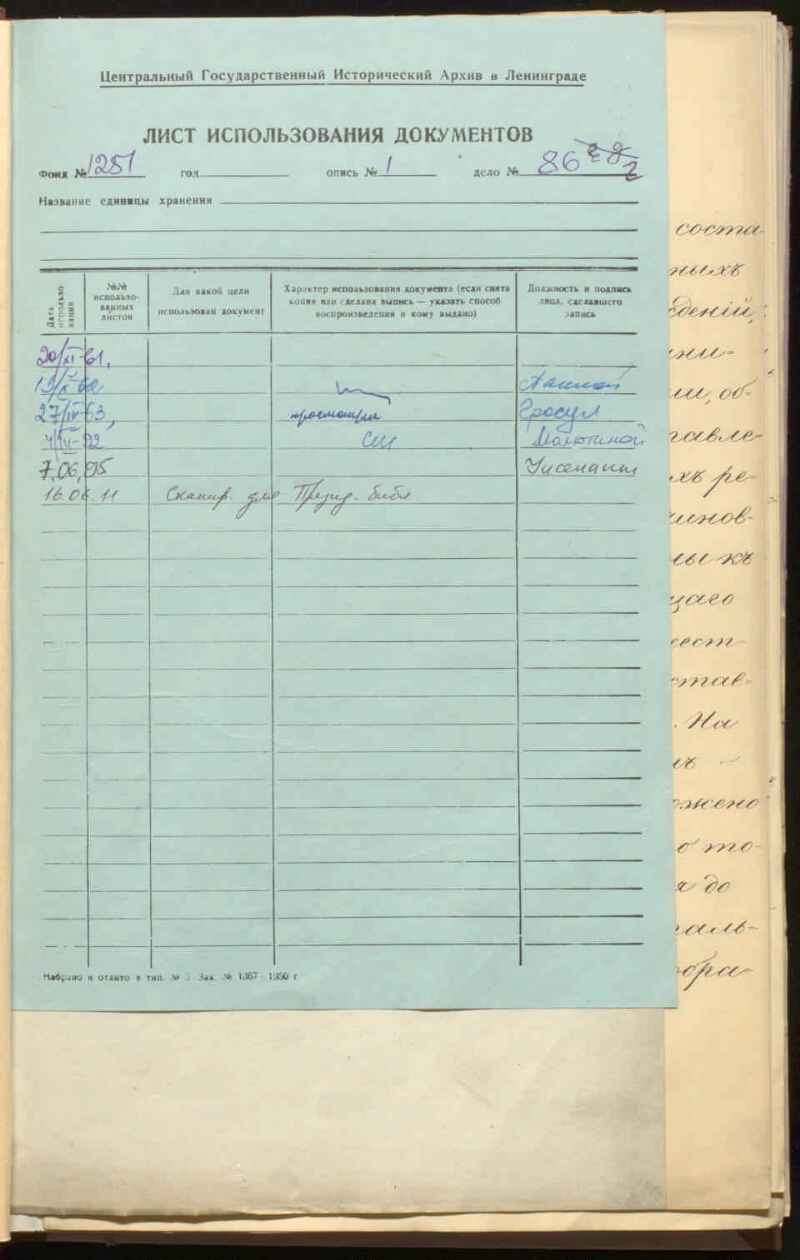 Центральный Государственный Исторический Архив в Ленинграде
ЛИСТ ИСПОЛЬЗОВАНИЯ ДОКУМЕНТОВ
Фонд № 1251 год опись № 1 дело № 86
Название единицы хранения
Дата использования
№№ использо-
ванных
листов
Для какой цели
использован документ
Характер использования документа (если снята
копия или сделана выпись — указать способ
воспроизведения и кому выдано)
Должность и подпись
лица, сделавшего
запись
20/XI-61,
19/X
27/IV-63, просмотрел Гросул
4/VII-72 Малютиной
7.06.95
16.06.11 Сканир. для През. библ
Набрано и отлито в тип. № Зак. № 1367—1950 г
соста-
ныхъ
деній,
ни-
ми, об-
авле-
хъ ре-
инов-
ы къ
щаго
ест-
став-
. На
ожено
о то-
я до
аль-
обра-